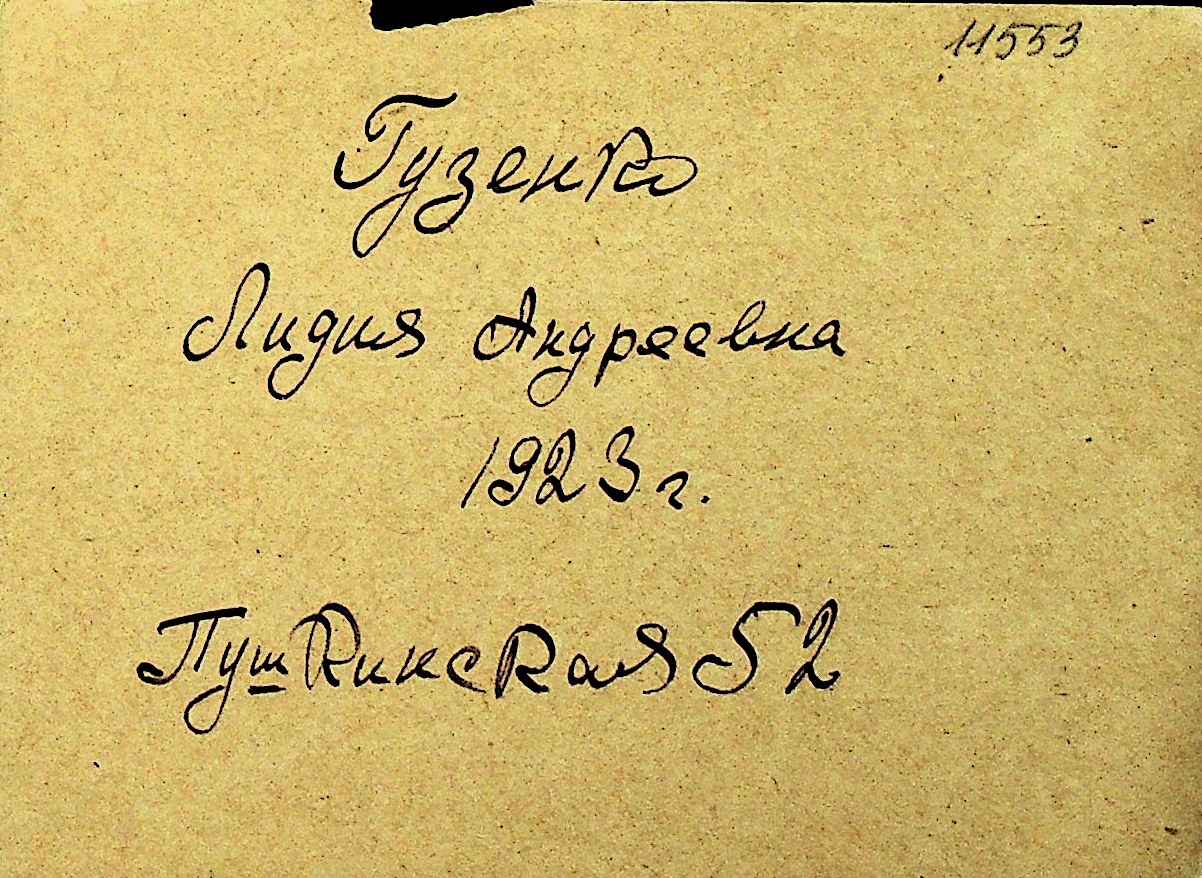 11553
Гузенко
Лидия Андреевна
1923 г.
Пушкинская 52